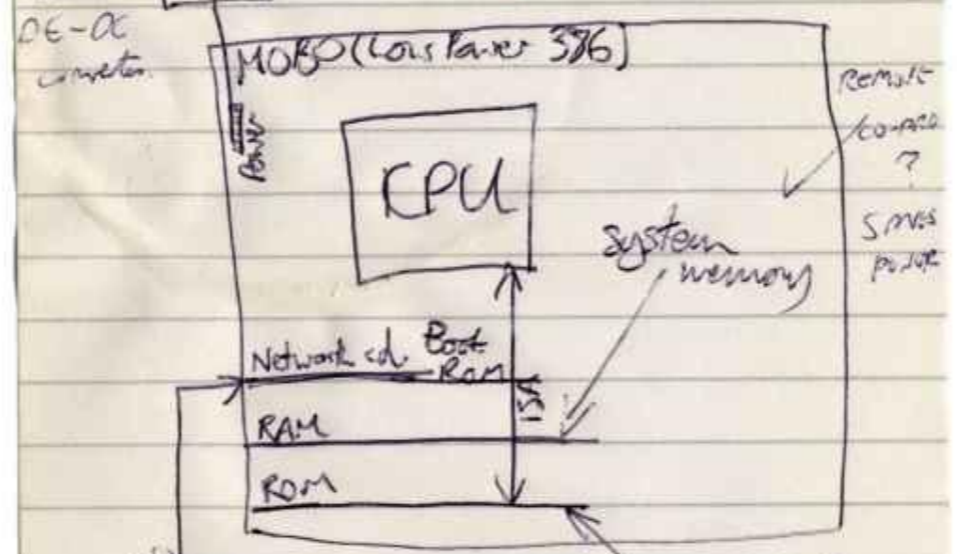 DC-DC
converter.
MOBO (Low Power 386)
Power
CPU
REMOVE
?
SAVES
POWER
system
memory
Network cd. Boot
ROM
ISA
RAM
ROM